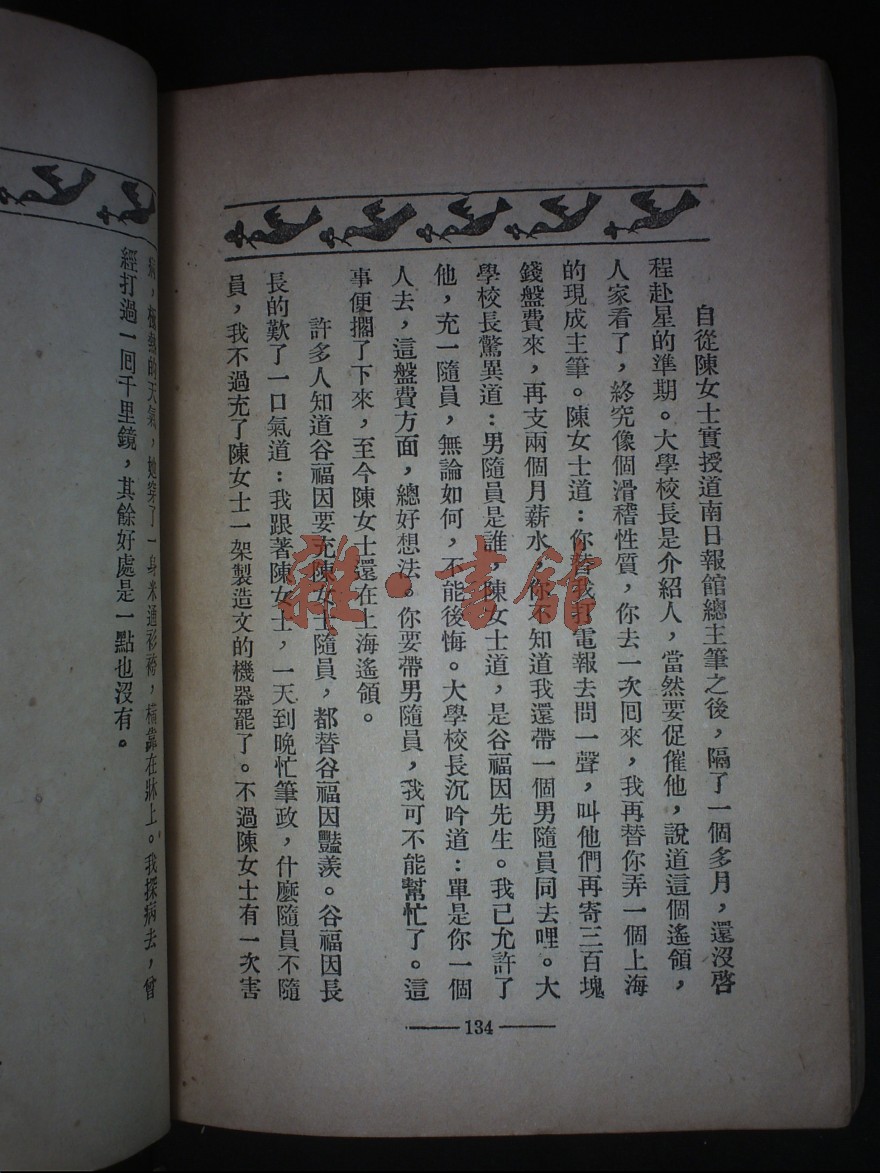 自從陳女士實授道南日報館總主筆之後，隔了一個多月，還沒啓
程赴星的準期。大學校長是介紹人，當然要促催他，說道這個遙領，
人家看了，終究像個滑稽性質，你去一次回來，我再替你弄一個上海
的現成主筆。陳女士道：你替我打電報去問一聲，叫他們再寄三百塊
錢盤費來，再支兩個月薪水，你不知道我還帶一個男隨員同去哩。大
學校長驚異道：男隨員是誰，陳女士道，是谷福因先生。我已允許了
他，充一隨員，無論如何，不能後悔。大學校長沉吟道：單是你一個
人去，這盤費方面，總好想法。你要帶男隨員，我可不能幫忙了。這
事便擱了下來，至今陳女士還在上海遙領。
許多人知道谷福因要充陳女士隨員，都替谷福因豔羨。谷福因長
長的歎了一口氣道：我跟著陳女士，一天到晚忙筆政，什麼隨員不隨
員，我不過充了陳女士一架製造文的機器罷了。不過陳女士有一次害
134
病，極熱的天氣，她穿了一身米通衫袴，橫靠在牀上。我探病去，曾
經打過一回千里鏡，其餘好處是一點也沒有。
雜·書館